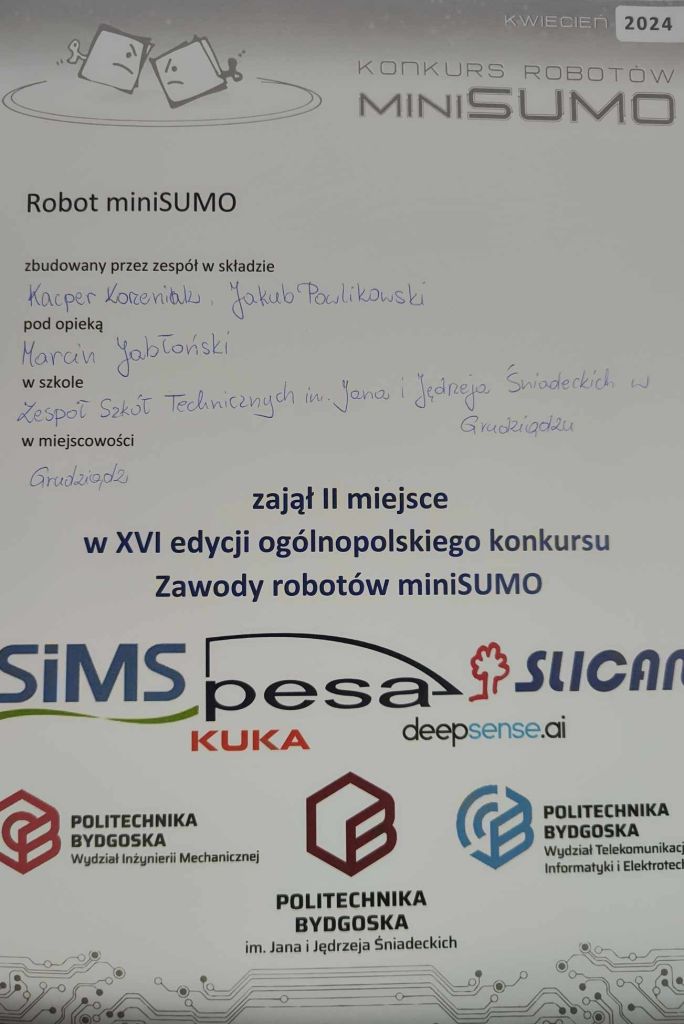 KWIECIEŃ 2024
KONKURS ROBOTÓW
MINISUMO
Robot miniSUMO
zbudowany przez zespół w składzie
Kacper Korzeniak, Jakub Pawlikowski
pod opieką
Marcin Jabłoński
w szkole
Zespół Szkół Technicznych im. Jana i Jędrzeja Śniadeckich w
Grudziądzu
w miejscowości
Grudziądz
zajął II miejsce
w XVI edycji ogólnopolskiego konkursu
Zawody robotów miniSUMO
SiMS
pesa
SLICAN
KUKA
deepsense.ai
POLITECHNIKA
BYDGOSKA
Wydział Inżynierii Mechanicznej
POLITECHNIKA
BYDGOSKA
im. Jana i Jędrzeja Śniadeckich
POLITECHNIKA
BYDGOSKA
Wydział Telekomunikacj
Informatyki i Elektrotech